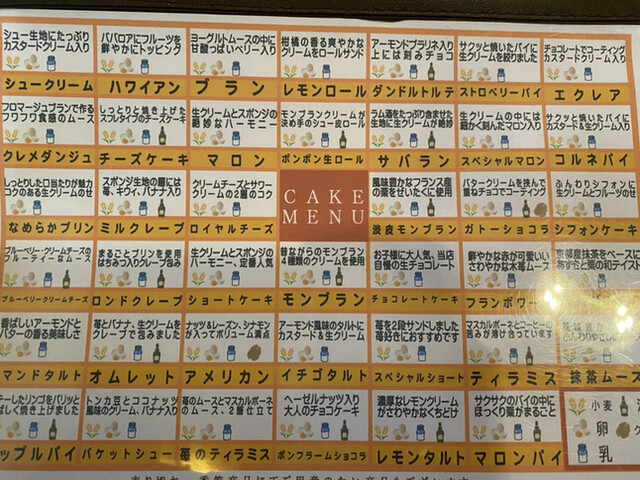 シュー生地にたっぷり
カスタードクリーム入り
シュークリーム
ババロアにフルーツを
鮮やかにトッピング
ハワイアン
ヨーグルトムースの中に
甘酸っぱいベリー入り
ブラン
柑橘の香る爽やかな
クリームをロールサンド
レモンロール
アーモンドプラリネ入り
上には刻みチョコ
ダンドルトルテ
サクッと焼いたパイに
生クリームを絞りました
ストロベリーパイ
チョコレートでコーティング
カスタード生クリーム入り
エクレア
フロマージュブランで作る
フワフワ食感のムース
クレメダンジュ
しっとりと焼き上げた
スフレタイプのチーズケーキ
チーズケーキ
生クリームとスポンジの
絶妙なハーモニー
マロン
モンブランクリームが
決め手のシュー皮ロール
ボンボン生ロール
ラム酒をたっぷり含ませた
生地に生クリームが絶妙
サバラン
生クリームの中には
細かく刻んだマロン入り
スペシャルマロン
サクッと焼いたパイに
カスタード&生クリーム入り
コルネパイ
しっとりした口当たりが魅力
コクのある生クリームのせ
なめらかプリン
スポンジ生地の層には
苺、キウィ、バナナ入り
ミルクレープ
クリームチーズとサワー
クリームの2層のコク
ロイヤルチーズ
CAKE
MENU
風味豊かなフランス産
の栗をぜいたくに使用
渋皮モンブラン
バタークリームを挟んで
重ねチョコでコーティング
ガトーショコラ
ふんわりシフォンに
生クリームとフルーツのせ
シフォンケーキ
ブルーベリー・クリームチーズの
フルーティーなムース
ブルーベリークリームチーズ
まるごとプリンを使用
はちみつ入りクレープ包み
ロンドクレープ
生クリームとスポンジの
ハーモニー、定番人気
ショートケーキ
昔ながらのモンブラン
4種類のクリームを使用
モンブラン
お子様に大人気、当店
自慢の生チョコレート
チョコレートケーキ
鮮やかな赤が可愛い
さわやかな木苺ムース
フランボワー
京都産抹茶をベースに
あずきと栗の和テイス
香ばしいアーモンドと
バターの香る美味しさ
マンドタルト
苺とバナナ、生クリームを
クレープで包みました
オムレット
ナッツ&レーズン、シナモン
が入ってボリューム満点
アメリカン
アーモンド風味のタルトに
カスタード&生クリーム
イチゴタルト
苺を2段サンドしました
苺好きにおすすめです
スペシャルショート
マスカルポーネとコーヒーの
苦みが溶け合っています
ティラミス
抹茶ムース
したリンゴをパリッと
ばしく焼き上げました
ップルパイ
トンカ豆とココナッツ
風味のクリーム、バナナ入り
バケットシュー
苺のムースとマスカルポーネ
のムース、2層仕立て
苺のティラミス
ヘーゼルナッツ入り
大人のチョコケーキ
ボンフラームショコラ
濃厚なレモンクリーム
がさわやかなくちどけ
レモンタルト
サクサクのパイの中に
ほっくり栗がまるごと
マロンパイ
小麦
卵
乳